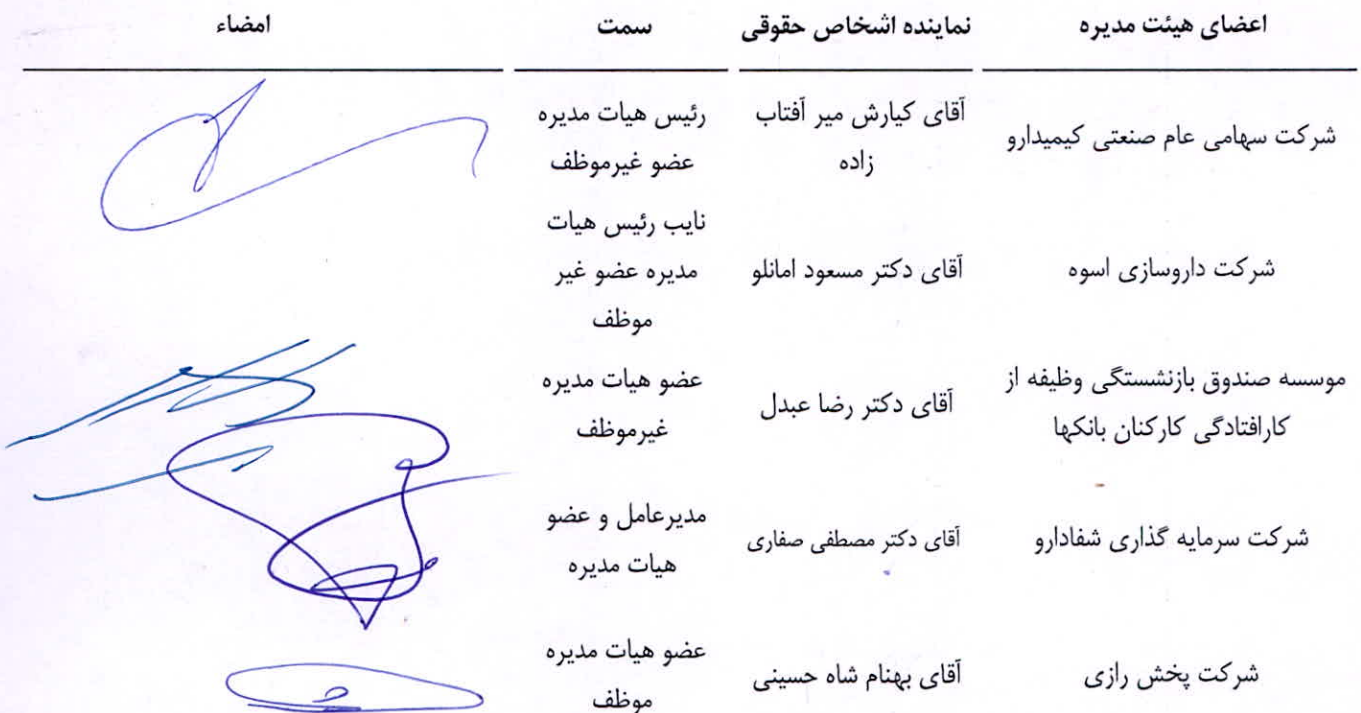 اعضای هیئت مدیره نماینده اشخاص حقوقی سمت امضاء
شرکت سهامی عام صنعتی کیمیدارو
آقای کیارش میر آفتاب
زاده
رئیس هیات مدیره
عضو غیرموظف
شرکت داروسازی اسوه
آقای دکتر مسعود امانلو
نایب رئیس هیات
مدیره عضو غیر
موظف
موسسه صندوق بازنشستگی وظیفه از
کارافتادگی کارکنان بانکها
آقای دکتر رضا عبدل
عضو هیات مدیره
غیرموظف
شرکت سرمایه گذاری شفادارو
آقای دکتر مصطفی صفاری
مدیرعامل و عضو
هیات مدیره
شرکت پخش رازی
آقای بهنام شاه حسینی
عضو هیات مدیره
موظف